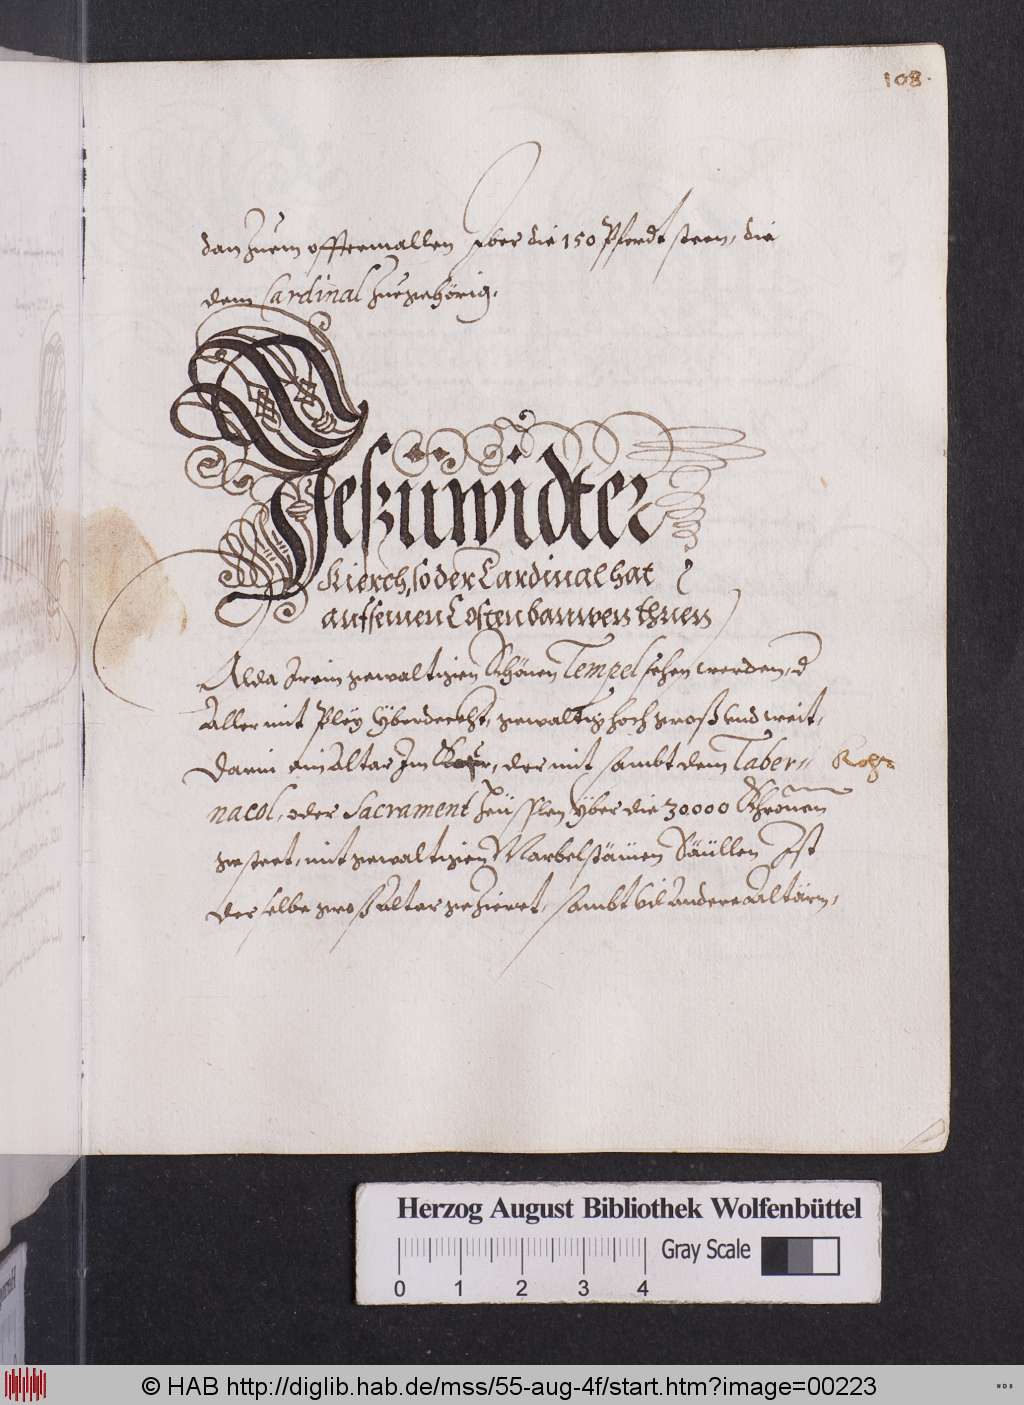 108.
dan Zuem offtermallen yber die 150 Pferdt steen, die
dem Cardinal Zuegehörig.
Jeszuwidter
Kierch, so der Cardinal hat
auf seinen Costen bauwen thuen
Alda Ir ein gewaltigen Schönen Tempel sehen werden, d
Aller mit Pley yberdeckht, gewaltig hoch groß vnd weit,
Darin ein Altar Im, der mit sambt dem Taber⸗
nacol, oder Sacrament Heüßlen yber die 30000 Chronen
gesteet, mit gewaltigen Marbelstäinen Säüllen Ist
der selbe groß Altar gezieret, sambt vil Andere Aaltärn,
Herzog August Bibliothek Wolfenbüttel
0 1 2 3 4 Gray Scale
© HAB http://diglib.hab.de/mss/55-aug-4f/start.htm?image=00223